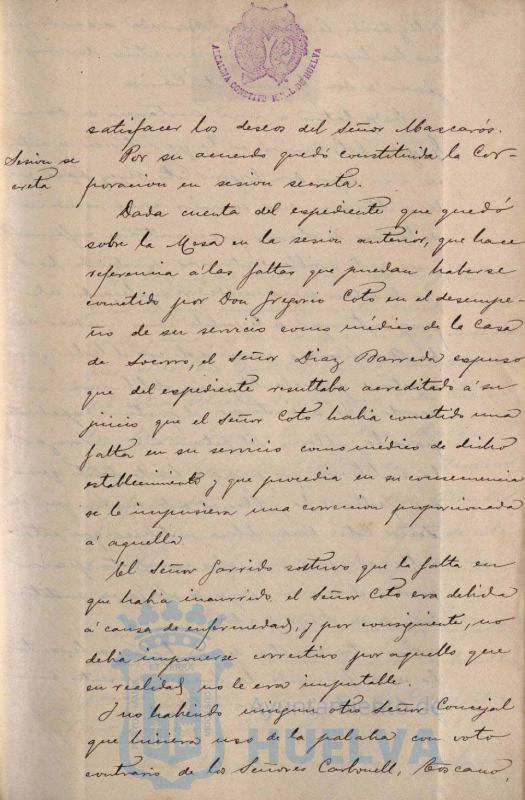 ALCALDIA CONSTITUCIONAL DE HUELVA
satisfacer los deseos del Señor Mascarós.
Sesion se
creta
Por su acuerdo quedó constituida la Cor-
poracion en sesion secreta.
Dada cuenta del espediente que quedó
sobre la Mesa en la sesion anterior, que hace
referencia á las faltas que puedan haberse
cometido por Don Gregorio Coto en el desempe-
ño de su servicio como médico de la Casa
de Socorro, el Señor Diaz Barreda espuso
que del espediente resultaba acreditado á su
juicio que el Señor Coto habia cometido una
falta en su servicio como médico de dicho
establecimiento y que procedia en su consecuencia
se le impusiera una correccion proporcionada
á aquella
El Señor Garrido sostuvo que la falta en
que habia incurrido el Señor Coto era debida
á causa de enfermedad, y por consiguiente, no
debia imponerse correctivo por aquello que
en realidad no le era imputable.
Y no habiendo ningun otro Señor Concejal
que hiciera uso de la palabra con voto
contrario de los Señores Carbonell, Toscano,
Ayuntamiento de
HUELVA